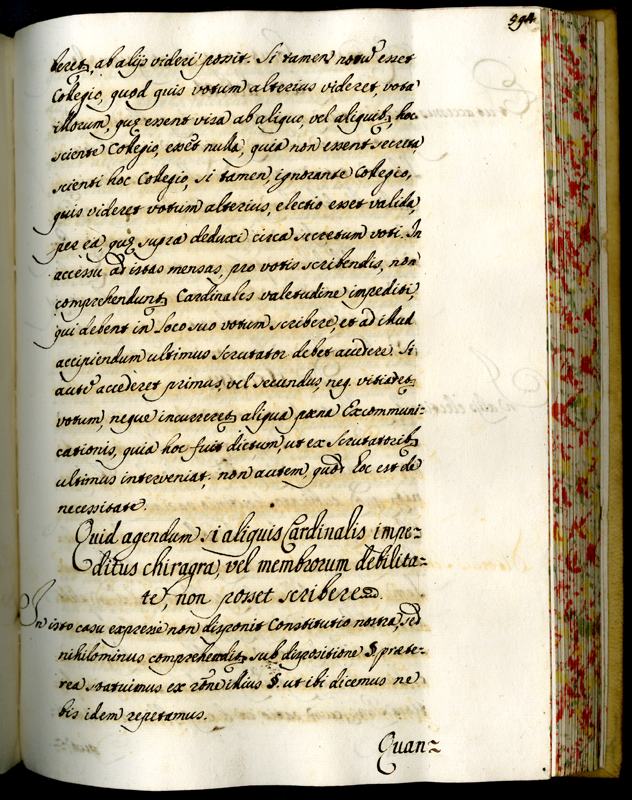 594
beret, ab alijs videri possit. Si tamen notũ esset
Collegio, quod quis votum alterius videret, vota
illorum, quę essent visa ab aliquo, vel aliquib₃, hoc
sciente Collegio, essẽt nulla, quia non essent secreta
scienti hoc Collegio, si tamen, ignorante Collegio,
quis videret votum alterius, electio esset valida,
per ea, quę supra deduxi circa secretum voti. In
accessu ad istas mensas, pro votis scribendis, non
comprehendunt₃ Cardinales valetudine impediti,
qui debent in loco suo votum scribere, et ad illud
accipiendum ultimus scrutator debet accedere. Si
autẽ accederet primus, vel secundus, neq. vitiaret₃
votum, neque incurreret₃ aliqua pœna Excommuni-
cationis, quia hoc fuit dictum, ut ex Scrutatorib₃
ultimus interveniat, non autem, quod hoc est de
necessitate.
Quid agendum si aliquis Cardinalis impe-
ditus chiragra, vel membrorum debilita-
te, non posset scribere.
In isto casu expresse non disponit Constitutio nostra, sed
nihilominus comprehendit₃ sub dispositione §. præte-
rea statuimus ex rõne illius §. ut ibi dicemus ne
bis idem repetamus.
Quan-